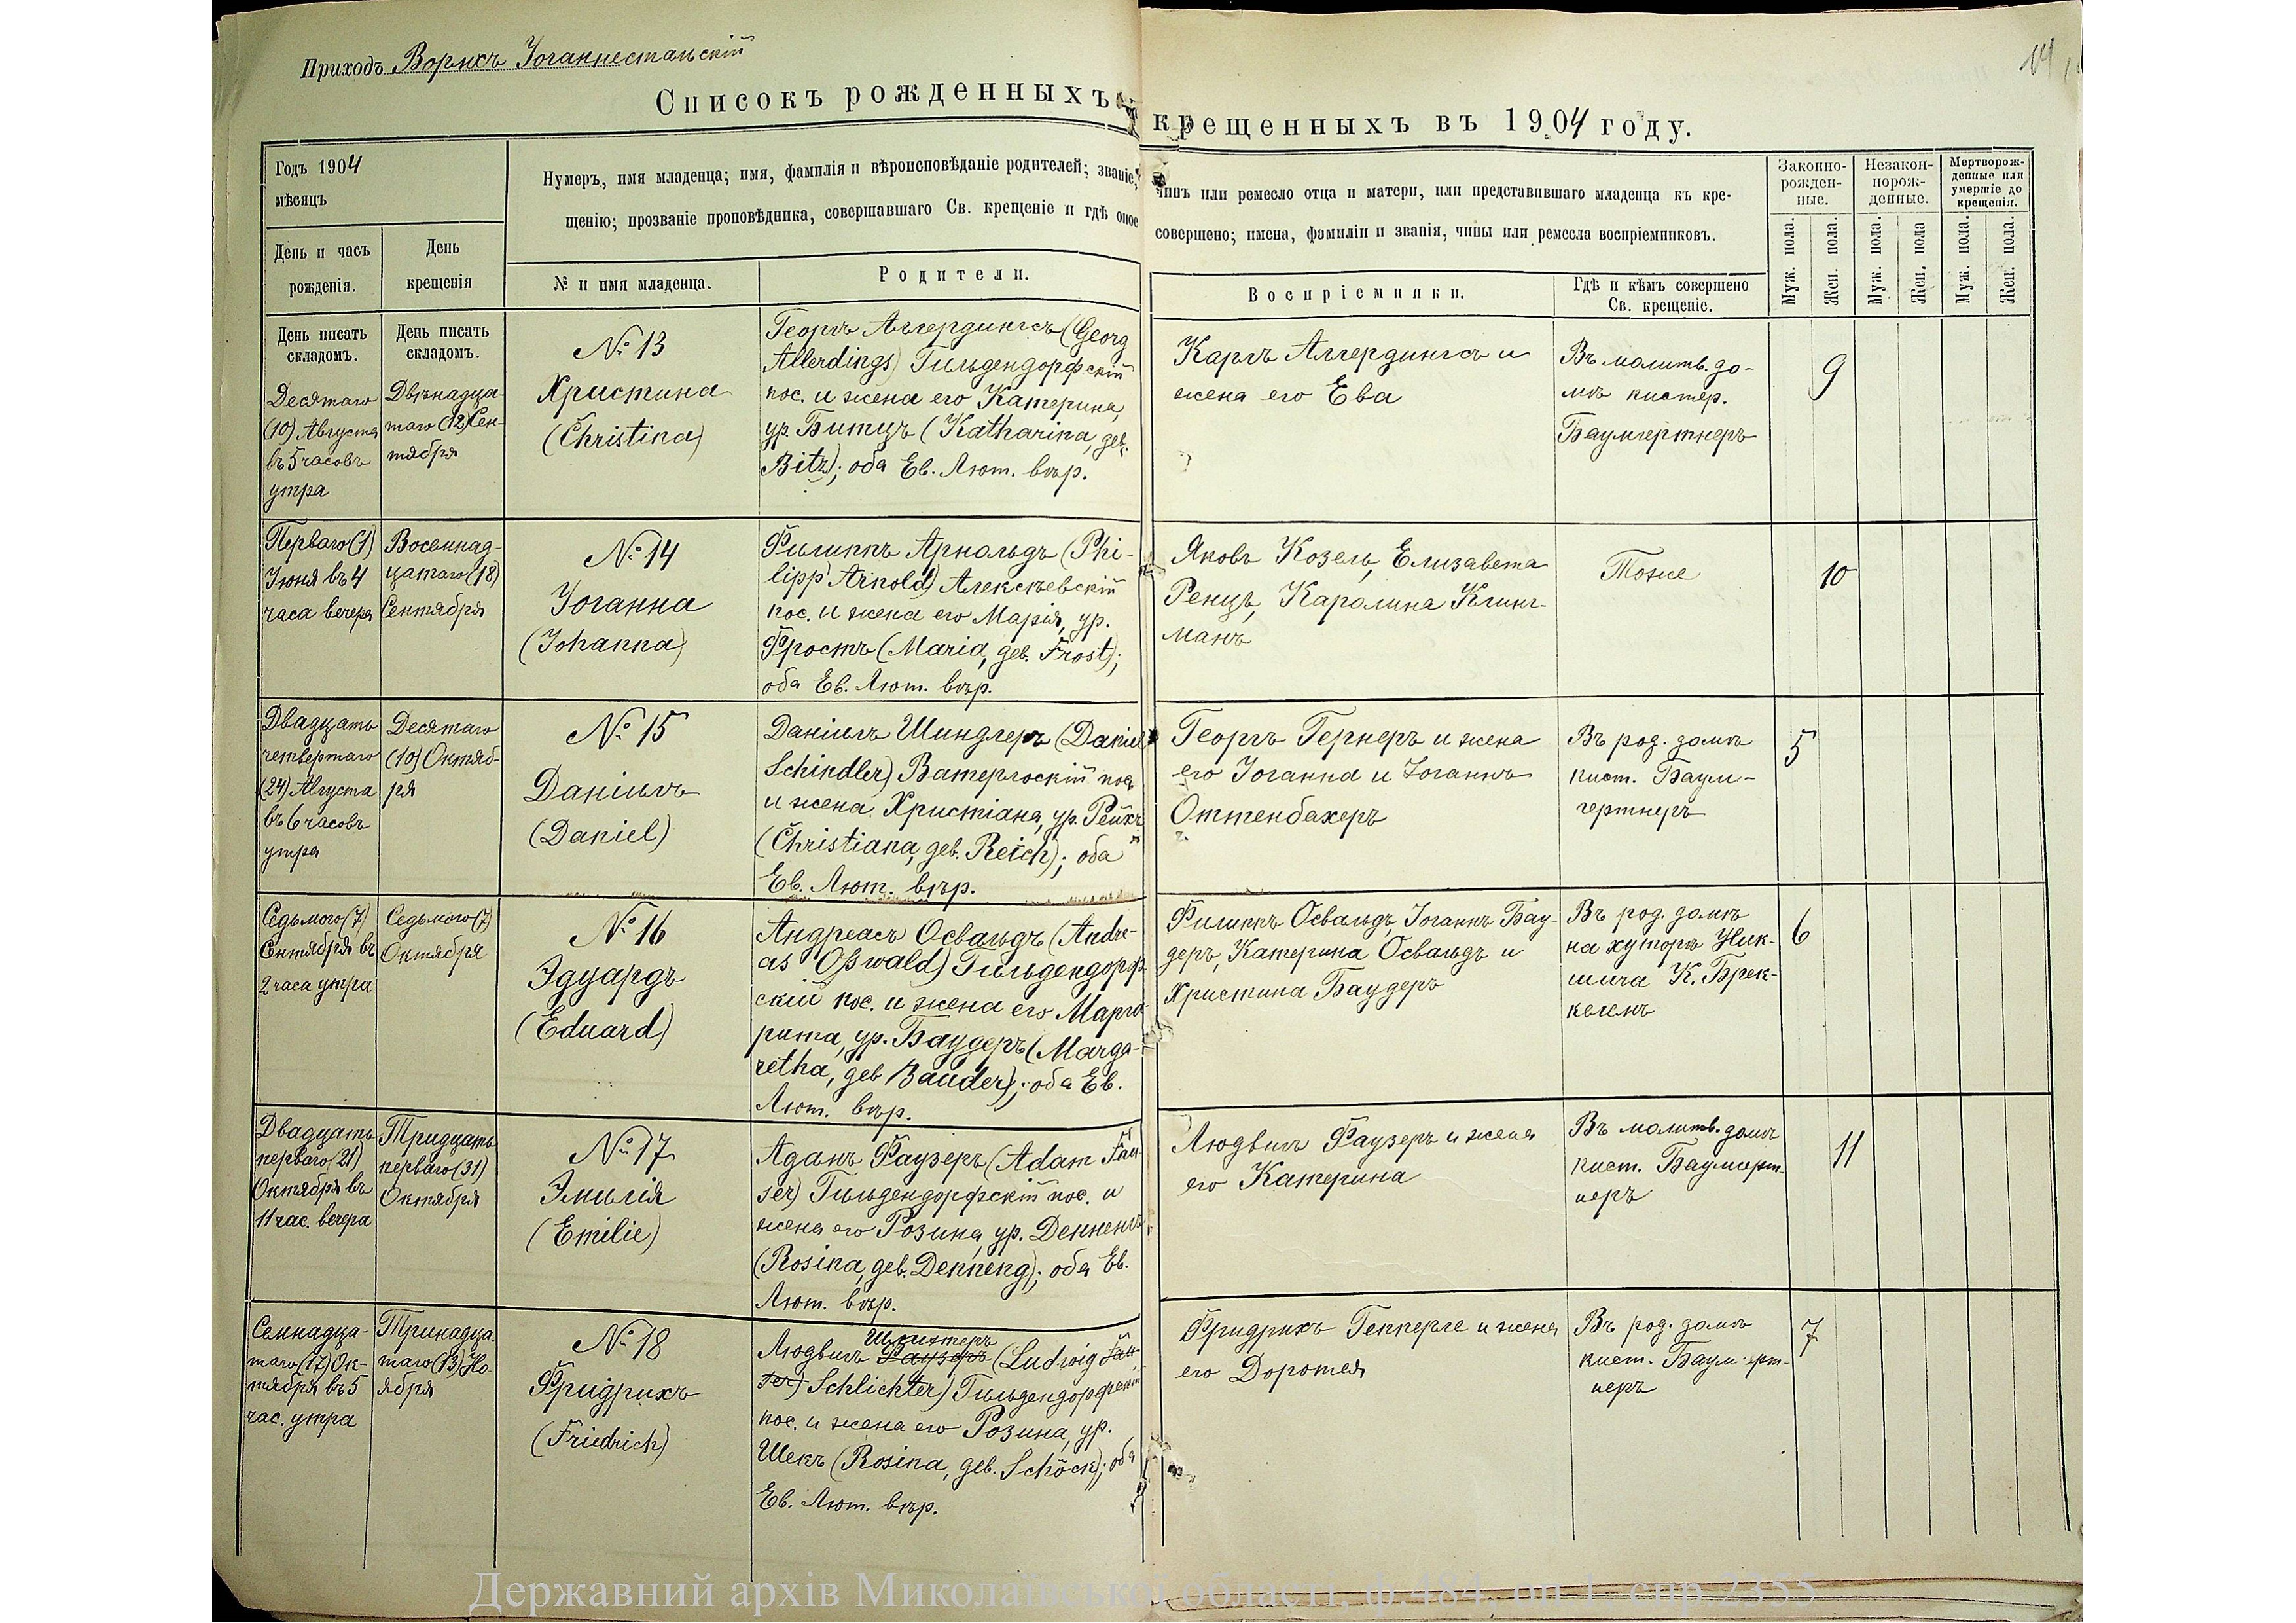 Приходъ Вормсъ Іоганнестальскій
14
Списокъ рожденныхъ и крещенныхъ въ 1904 году.
Годъ 1904
мѣсяцъ
День и часъ
рожденія.
День
крещенія
Нумеръ, имя младенца; имя, фамилія и вѣроисповѣданіе родителей; званіе, чинъ или ремесло отца и матери, или представившаго младенца къ кре-
щенію; прозваніе проповѣдника, совершавшаго Св. крещеніе и гдѣ оное совершено; имена, фамиліи и званія, чины или ремесла воспріемниковъ.
№ и имя младенца.
Родители.
Воспріемники.
Гдѣ и кѣмъ совершено
Св. крещеніе.
Законно-
рожден-
ные.
Незакон-
норож-
денные.
Мертворож-
денные или
умершіе до
крещенія.
Муж. пола.
Жен. пола.
Муж. пола.
Жен. пола
Муж. пола.
Жен. пола.
День писать
складомъ.
Десятаго
(10) Августа
въ 5 часовъ
утра
День писать
складомъ.
Двѣнадца-
таго (12) Сен-
тября
№ 13
Христина
(Christina)
Георгъ Аллердингсъ (Georg
Allerdings) Гильдендорфскій
пос. и жена его Катерина,
ур. Битцъ (Katharina, geb.
Bitz); оба Ев. Лют. вѣр.
Карлъ Аллердингсъ и
жена его Ева
Въ молитв. до-
мѣ кистер.
Баумгертнеръ
9
Перваго (1)
Іюня въ 4
часа вечера
Восемнад-
цатаго (18)
Сентября
№ 14
Іоганна
(Johanna)
Филиппъ Арнольдъ (Phi-
lipp Arnold) Алексѣевскій
пос. и жена его Марія, ур.
Фростъ (Maria, geb. Frost);
оба Ев. Лют. вѣр.
Яковъ Козель, Елизавета
Ренцъ, Каролина Клинг-
манъ
Тоже
10
Двадцать
четвертаго
(24) Августа
въ 6 часовъ
утра
Десятаго
(10) Октяб-
ря
№ 15
Даніилъ
(Daniel)
Даніилъ Шиндлеръ (Daniel
Schindler) Ватерлоскій пос.
и жена Христіана, ур. Рейхъ
(Christiana, geb. Reich); оба
Ев. Лют. вѣр.
Георгъ Гернеръ и жена
его Іоганна и Іоганнъ
Оттенбахеръ
Въ род. домѣ
кист. Баум-
гертнеръ
5
Седьмого (7)
Сентября въ
2 часа утра
Седьмого (7)
Октября
№ 16
Эдуардъ
(Eduard)
Андреасъ Освальдъ (Andre-
as Oßwald) Гильдендорф-
скій пос. и жена его Марга-
рита, ур. Баудеръ (Marga-
retha, geb Bauder); оба Ев.
Лют. вѣр.
Филиппъ Освальдъ, Іоганнъ Бау-
деръ, Катерина Освальдъ и
Христина Баудеръ
Въ род. домѣ
на хуторѣ
К. Брек-
кель
6
Двадцать
перваго (21)
Октября въ
11 час. вечера
Тридцать
перваго (31)
Октября
№ 17
Эмилія
(Emilie)
Адамъ Фаузеръ (Adam Fau-
ser) Гильдендорфскій пос. и
жена его Розина, ур. Денненгъ
(Rosina, geb. Denneng); оба Ев.
Лют. вѣр.
Людвигъ Фаузеръ и жена
его Катерина
Въ молитв. домѣ
кист. Баумгерт-
неръ
11
Семнадца-
таго (17) Ок-
тября въ 5
час. утра
Тринадца-
таго (13) Но-
ября
№ 18
Фридрихъ
(Friedrich)
Шлихтеръ
Людвигъ Фаузеръ (Ludwig Fau-
ser) Schlichter) Гильдендорфскій
пос. и жена его Розина, ур.
Шекъ (Rosina, geb. Schöck); оба
Ев. Лют. вѣр.
Фридрихъ Геккерле и жена
его Доротея
Въ род. домѣ
кист. Баумгерт-
неръ
7
Державний архів Миколаївської області, ф.484, оп.1, спр.2355